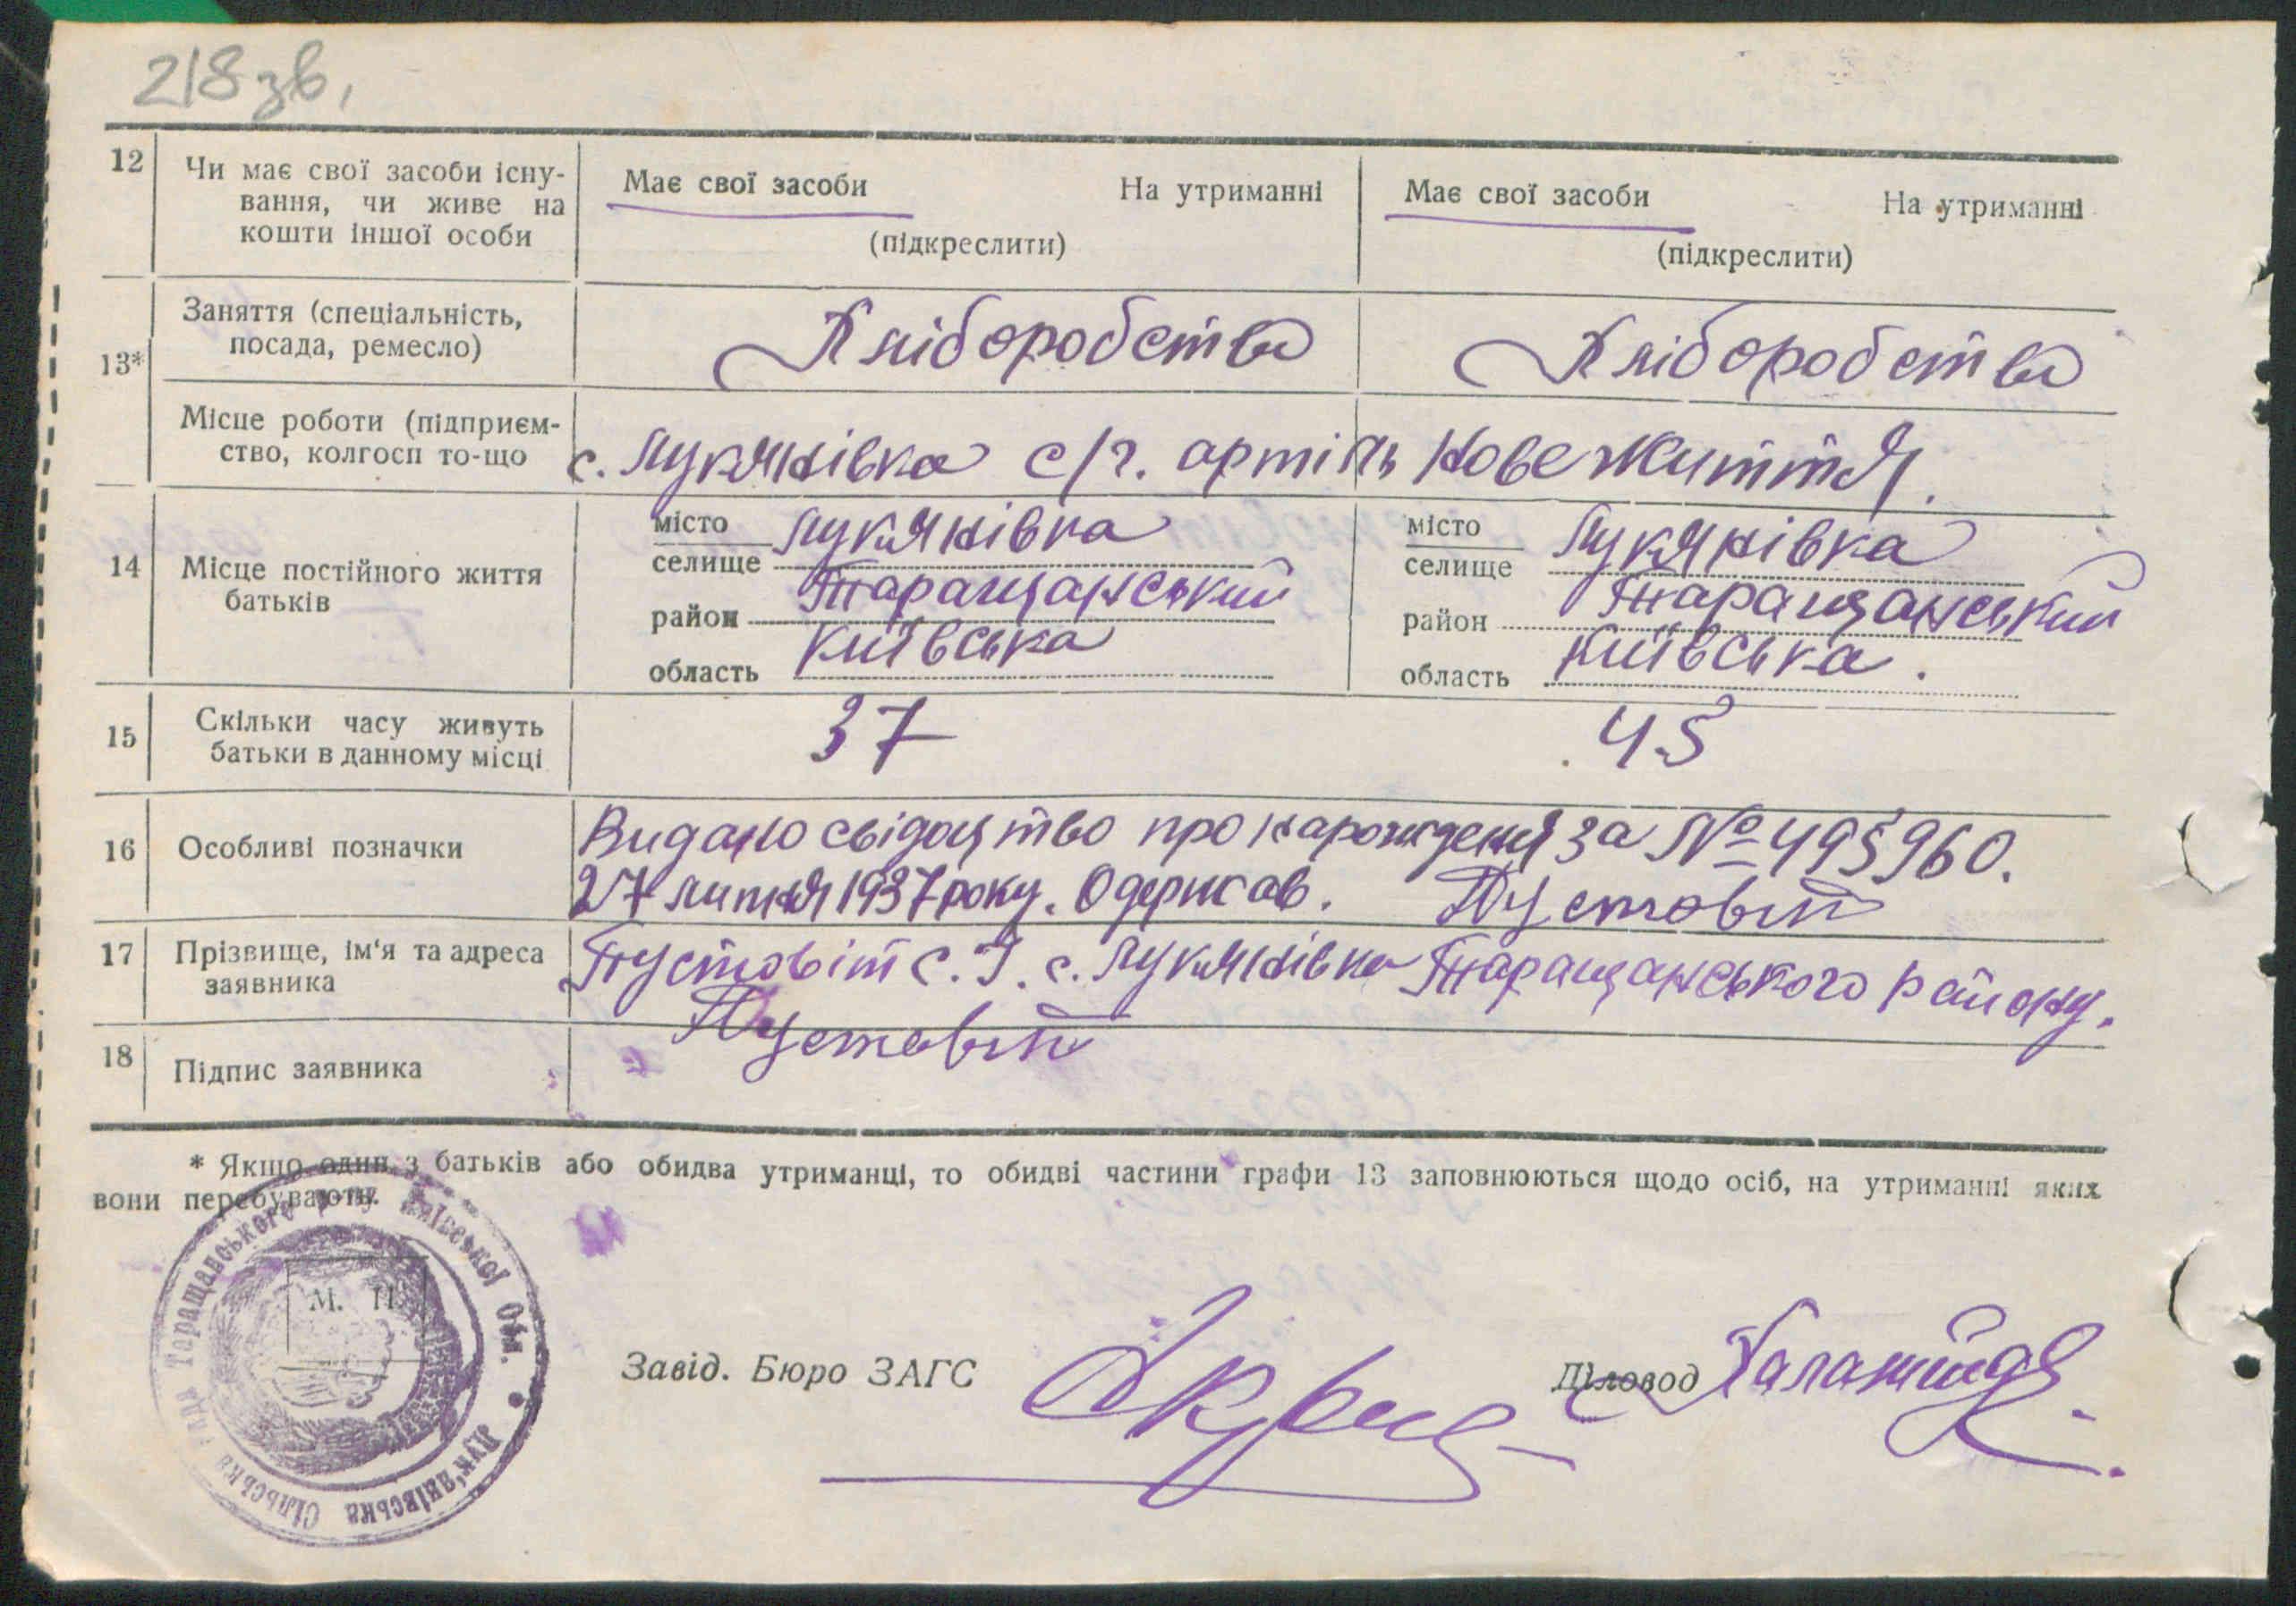 218 зв.
12 Чи має свої засоби існу-
вання, чи живе на
кошти іншої особи
Має свої засоби На утриманні
(підкреслити)
Має свої засоби На утриманні
(підкреслити)
13*
Заняття (спеціальність,
посада, ремесло)
Хліборобство
Хліборобство
Місце роботи (підприєм-
ство, колгосп то-що
с. Лукянівка с/г. артіль Нове життя.
14 Місце постійного життя
батьків
місто
селище Лукянівка
район Таращанський
область Київська
місто
селище Лукянівка
район Таращанський
область Київська.
15 Скільки часу живуть
батьки в данному місці
37
45
16 Особливі позначки
Видано свідоцтво про народження за № 495960.
27 липня 1937 року. Одержав. Пустовіт
17 Прізвище, ім'я та адреса
заявника
Пустовіт С. І. с. Лукянівка Таращанського району.
18 Підпис заявника
Пустовіт
* Якщо один з батьків або обидва утриманці, то обидві частини графи 13 заповнюються щодо осіб, на утриманні яких
вони перебувають.
Лук'янівська Сільська Рада Таращанського р-ну Київської Обл.
М. П.
Завід. Бюро ЗАГС
Діловод